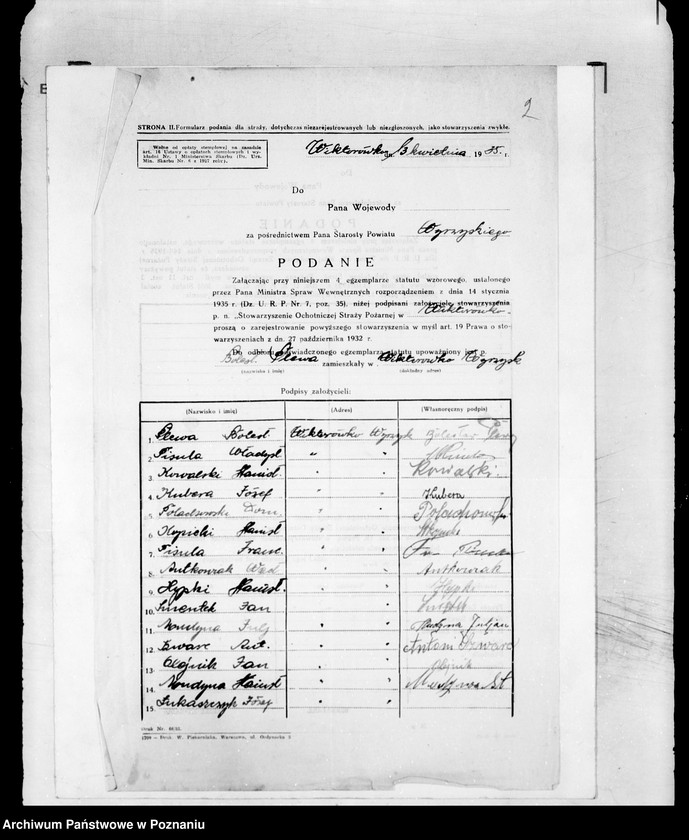 2
STRONA II. Formularz podania dla straży, dotychczas niezarejestrowanych lub niezgłoszonych, jako stowarzyszenia zwykłe.
Wolne od opłaty stemplowej na zasadzie
art. 16 Ustawy o opłatach stemplowych i wy-
kładni Nr. 1 Ministerstwa Skarbu (Dz. Urz.
Min. Skarbu Nr. 4 z 1927 roku).
Wiktorówko dn. 3 kwietnia 1935. r.
Do
Pana Wojewody
za pośrednictwem Pana Starosty Powiatu Wyrzyskiego
PODANIE
Załączając przy niniejszem 4 egzemplarze statutu wzorowego, ustalonego
przez Pana Ministra Spraw Wewnętrznych rozporządzeniem z dnia 14 stycznia
1935 r. (Dz. U. R. P. Nr. 7, poz. 35), niżej podpisani założyciele stowarzyszenia
p. n. „Stowarzyszenie Ochotniczej Straży Pożarnej w Wiktorówko
proszą o zarejestrowanie powyższego stowarzyszenia w myśl art. 19 Prawa o sto-
warzyszeniach z dn. 27 października 1932 r.
Do odbioru poświadczonego egzemplarza statutu upoważniony jest p.
Bolesł. Plewa zamieszkały w Wiktorówko Wyrzysk
(nazwisko i imię) (dokładny adres)
Podpisy założycieli:
(Nazwisko i imię) (Adres) (Własnoręczny podpis)
1. Plewa Bolesł Wiktorówko Wyrzysk Bolesław Plewa
2. Pisula Władysł " "
3. Kowalski Stanisł. " " Kowalski.
4. Kubera Józef " " Kubera
5. " "
6. Kopicki Stanisł " "
7. Pisula Franc. " "
8. Antkowiak " " Antkowiak
9. Hypki Stanisł. " " Hypki
10. Smentek Jan " "
11. Mondyna Julj " " Juljan
12. Szwarc Ant. " " Antoni Szwarc
13. Olejnik Jan " " Olejnik
14. Mondyna Stanisł " "
15. Łukaszczyk Józef " "
Druk Nr.
Druk. W. Piekarniaka, Warszawa, ul. Ordynacka 3
Archiwum Państwowe w Poznaniu